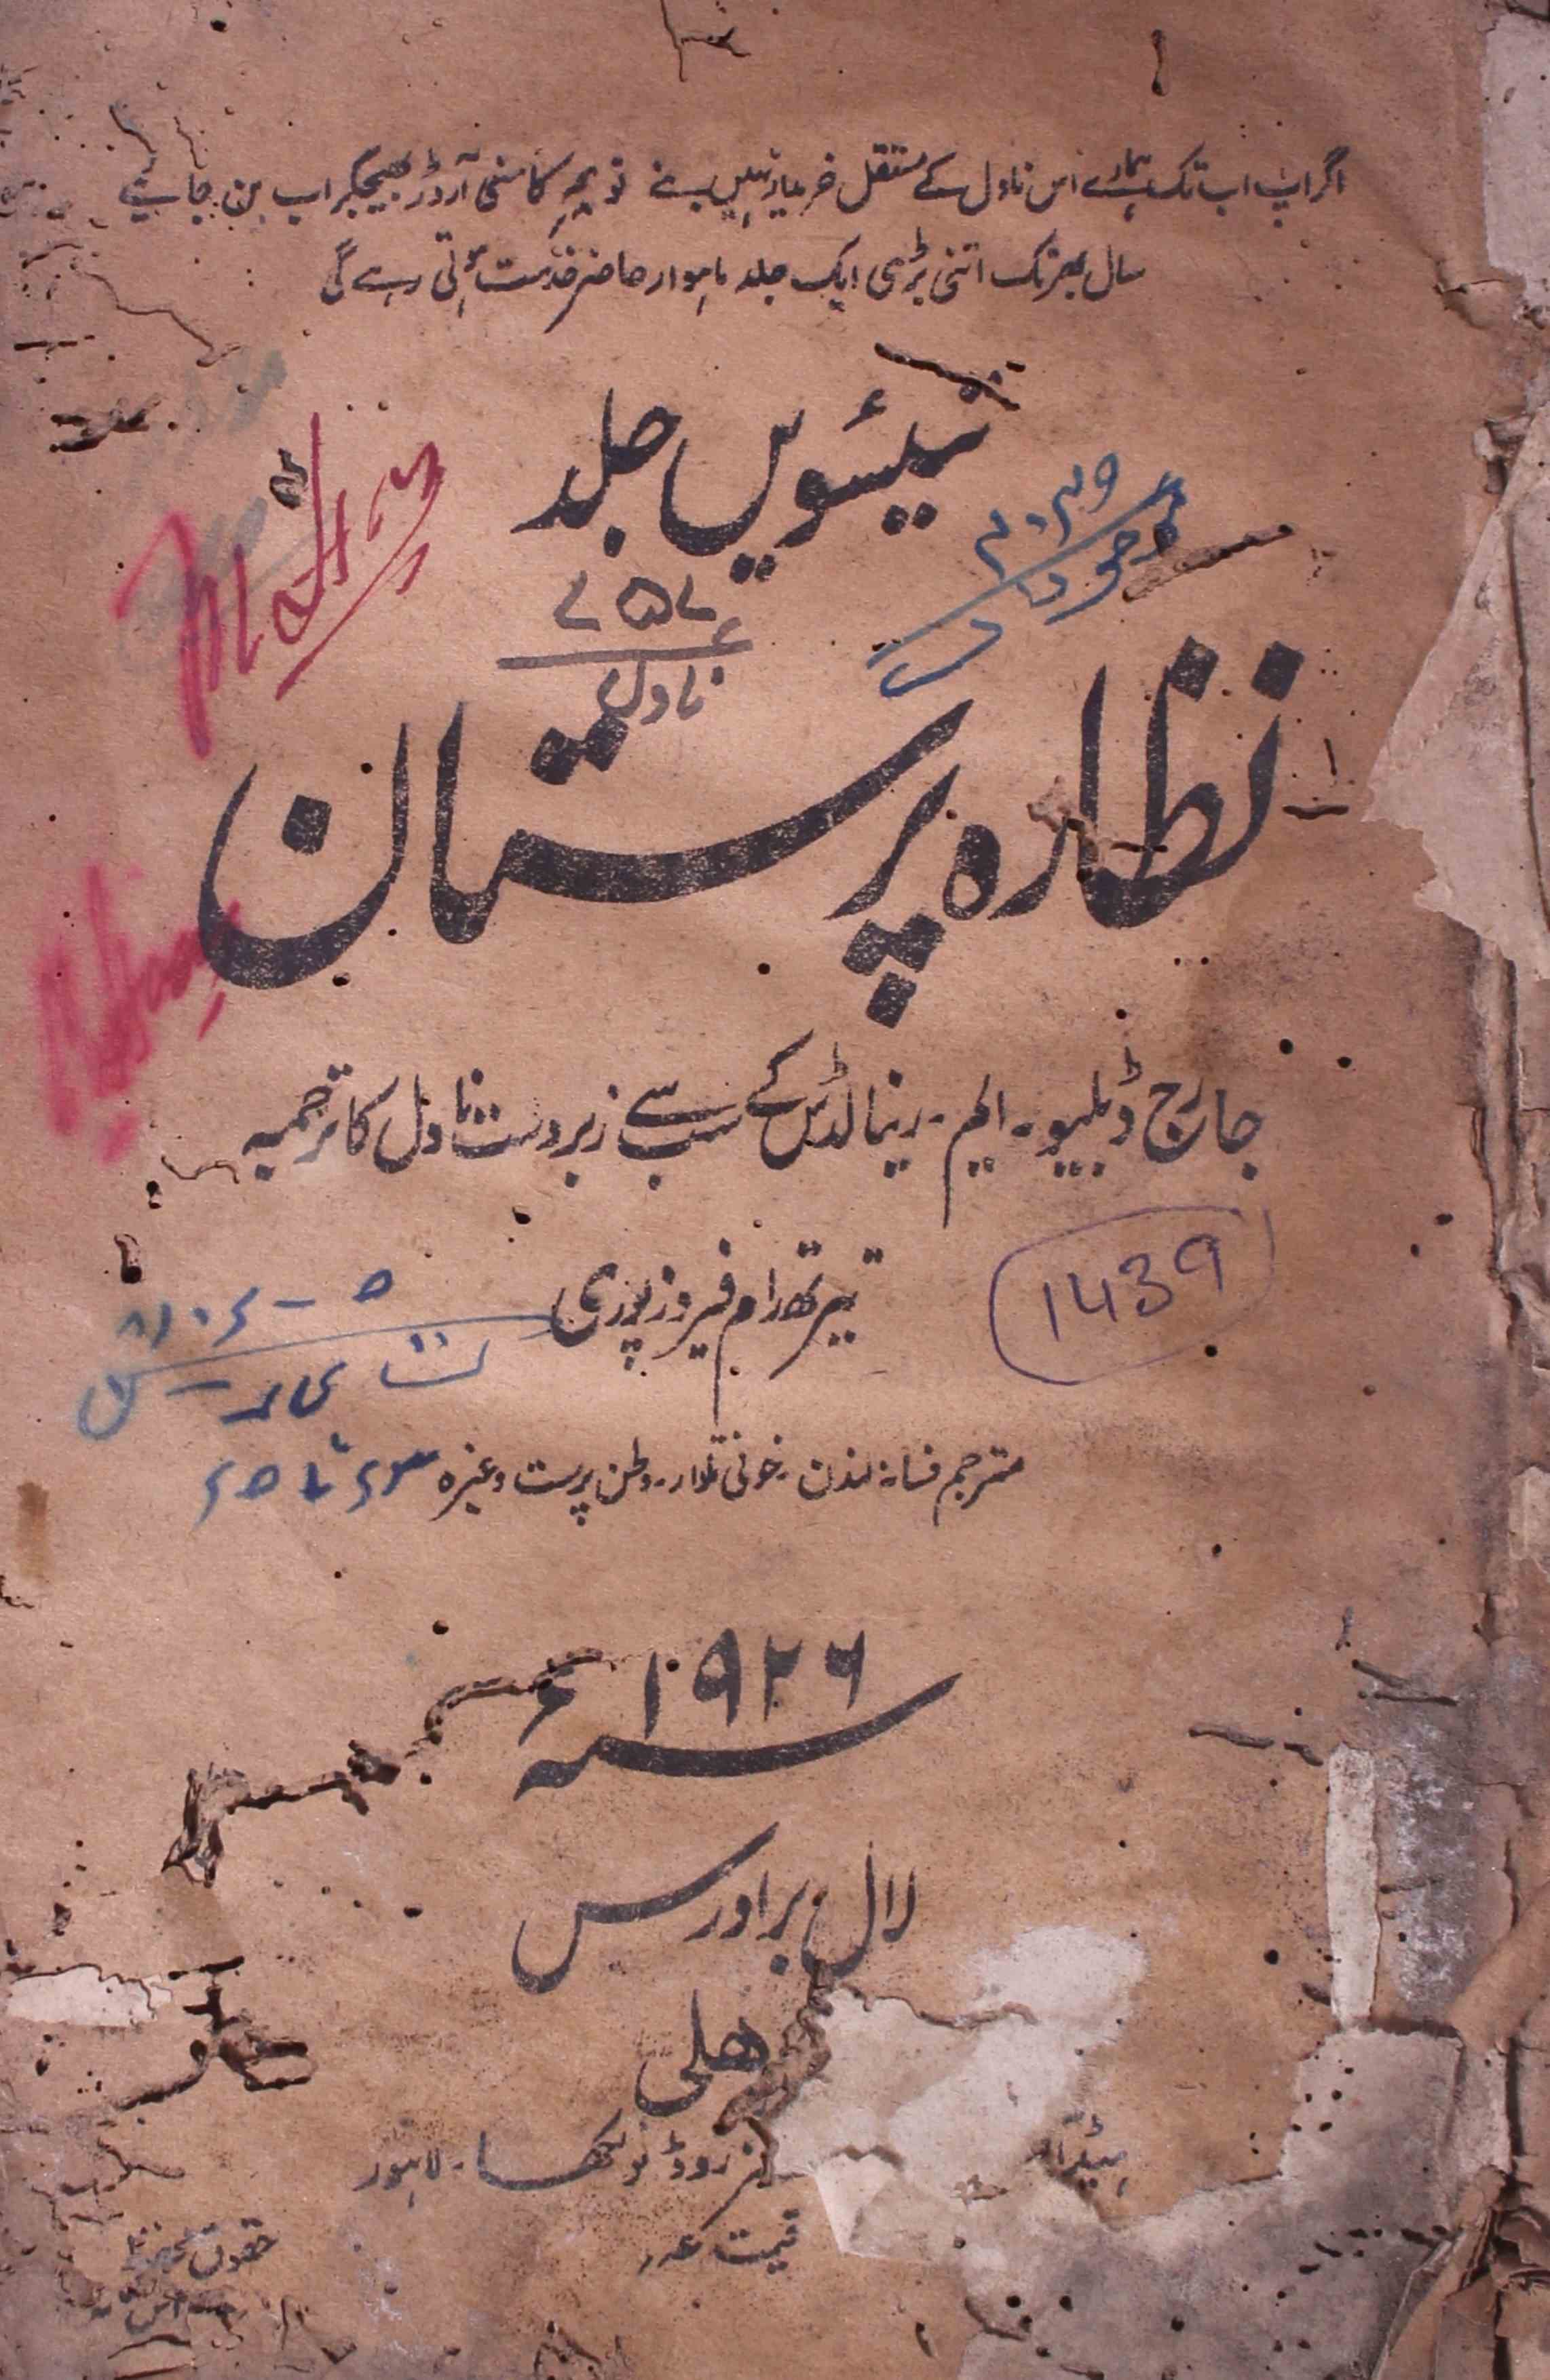 اگر آپ اب تک ہمارے اس ناول کے مستقل خریدار نہیں بنے تو کا منی آرڈر بھیجکر اب بن جائیے
سال بھر تک اتنی بڑی ایک جلد ماہوار حاضر خدمت ہوتی رہے گی
تیئسویں جلد
۲۰۲۹
موجود
۷۵۷
ناول
نظارہ پرستان
جارج ڈبلیو۔ ایم۔ رینالڈس کے سب سے زبردست ناول کا ترجمہ
1439
تیرتھ رام فیروزپوری
مترجم فسانہ لندن۔ خونی تلوار۔ وطن پرست وغیرہ
سنہ ۱۹۲۶ء
لال برادرس
روڈ نولکھا۔ لاہور
قیمت عہ
حقوق محفوظ